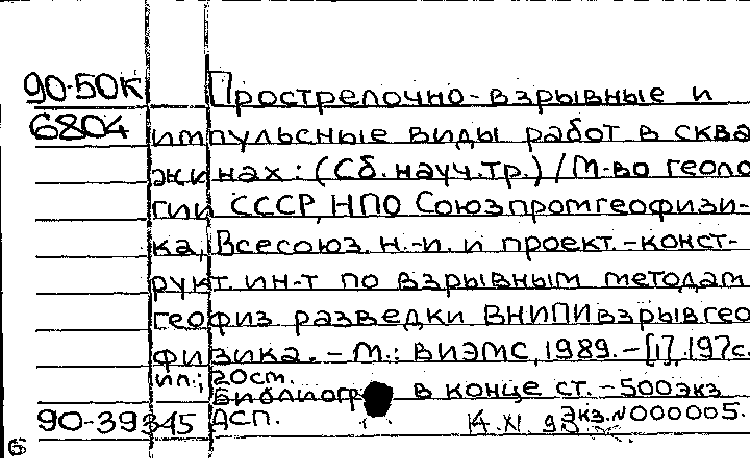 90-50К Прострелочно-взрывные и
6804 импульсные виды работ в сква
жинах: (Сб. науч. тр.) / М-во геоло
гии СССР, НПО Союзпромгеофизи-
ка, Всесоюз. н.-и. и проект.-конст-
рукт. ин-т по взрывным методам
геофиз разведки ВНИПИвзрывгео
физика. - М.: ВИЭМС, 1989. - [1], 197с.
ил.; 20см.
Библиогр в конце ст. - 500экз
90-39345 АСП. 14. XI. Экз. N000005.
6